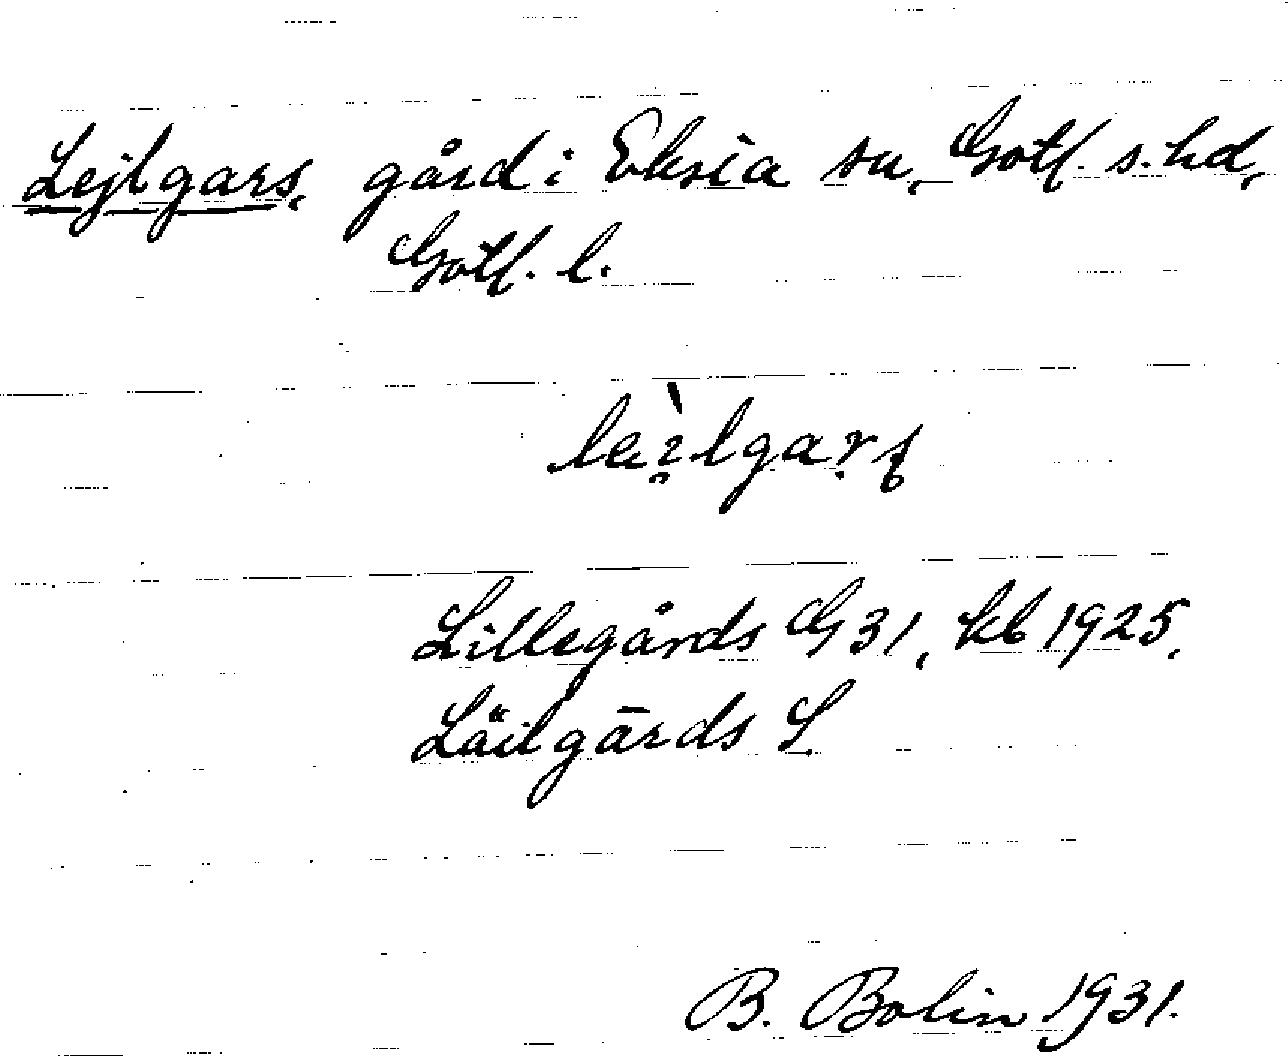 Lejlgars, gård i Eksta sn, Gotl. s. hd,
Gotl. l.
Lillegårds G 31, kb 1925.
Läilgårds L
B. Bolin 1931.